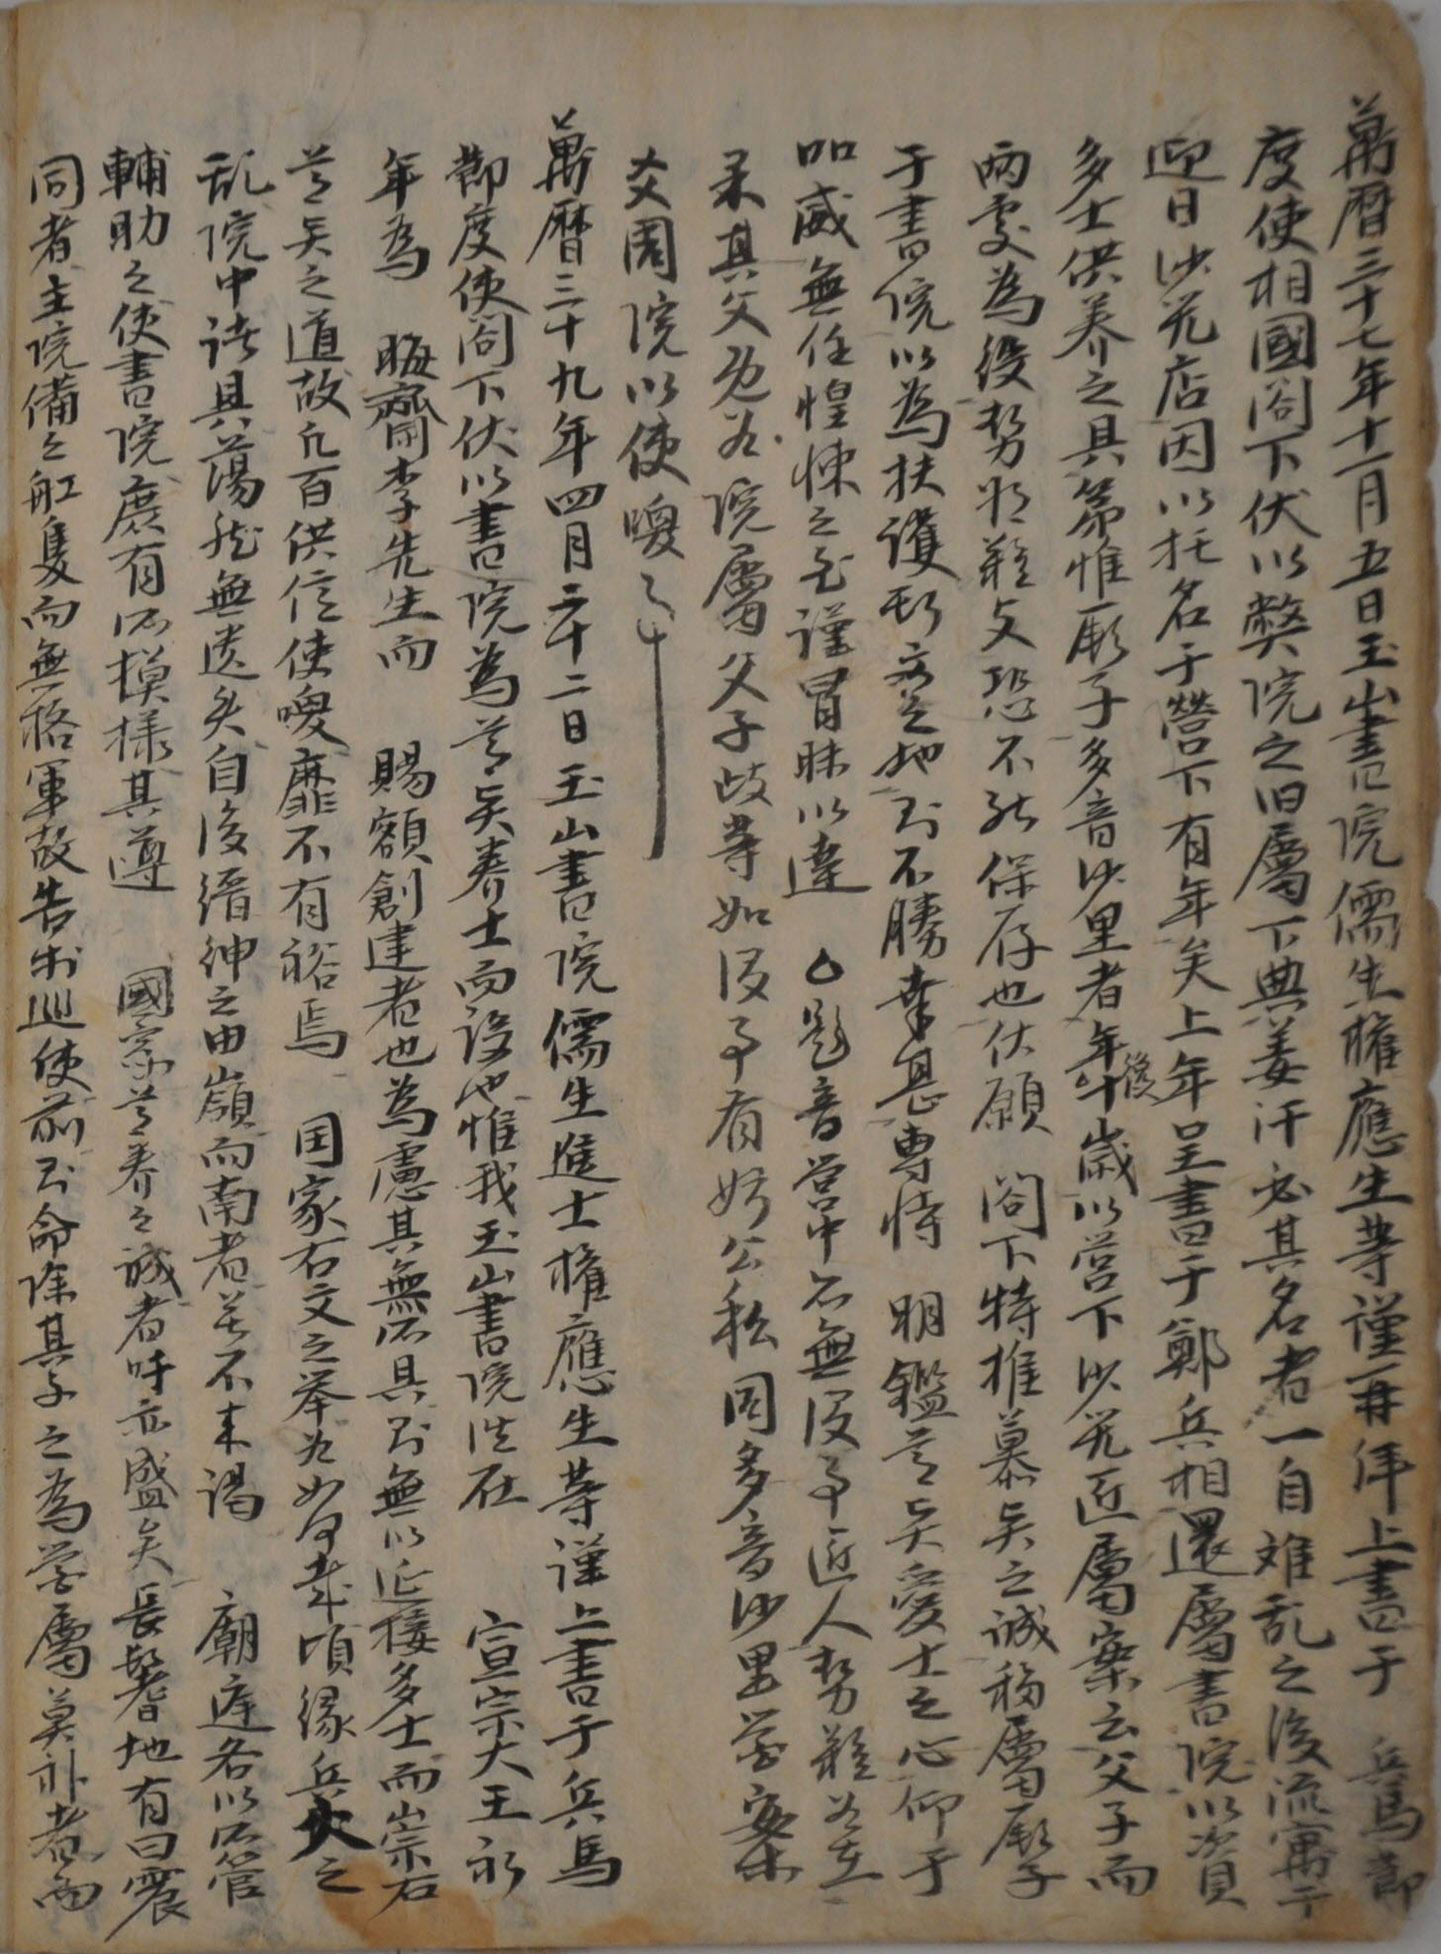 萬曆三十七年十一月五日玉山書院儒生權應生等謹再拜上書于 兵馬節
度使相國閤下伏以弊院之旧屬下典姜汗必其名者一自难乱之後流寓于
迎日沙羌店因以托名于營下有年矣上年呈書于鄭兵相還屬書院以資
多士供养之具第惟厥子多音沙里者年後歲以营下沙羌匠屬案云父子而
兩處為役勢所難支恐不能保存也伏願 閤下特推慕矣之誠移屬厥子
于書院以為扶護所之地不勝幸甚專恃 明鑑矣愛士之心仰于
加威無任惶悚之至謹冒昧以達 題音营中不無役事匠人勢難
來其父为院屬父子歧等如役事有妨公私同多音沙里案
爻周院以使喚事
萬曆三十九年四月二十二日玉山書院儒生進士權應生等謹上書于兵馬
節度使閤下伏以書院為养士而設也惟我玉山書院在 宣宗大王初
年為 晦齋李先生而 賜額創建者也為慮其無所具無以延接多士而崇
矣之道故凡百供使喚靡不有裕焉 国家右文之举为如何哉頃緣兵火之
乱院中諸具蕩然無遺矣自後縉紳之由嶺而南者莫不来謁 廟庭各以所管
輔助之使書院庶有所模樣其遵 國家养之誠者吁亦盛矣長鬐地有曰震
同者主院備之舡隻而無格軍故告于巡使前命除其子之為营屬者而